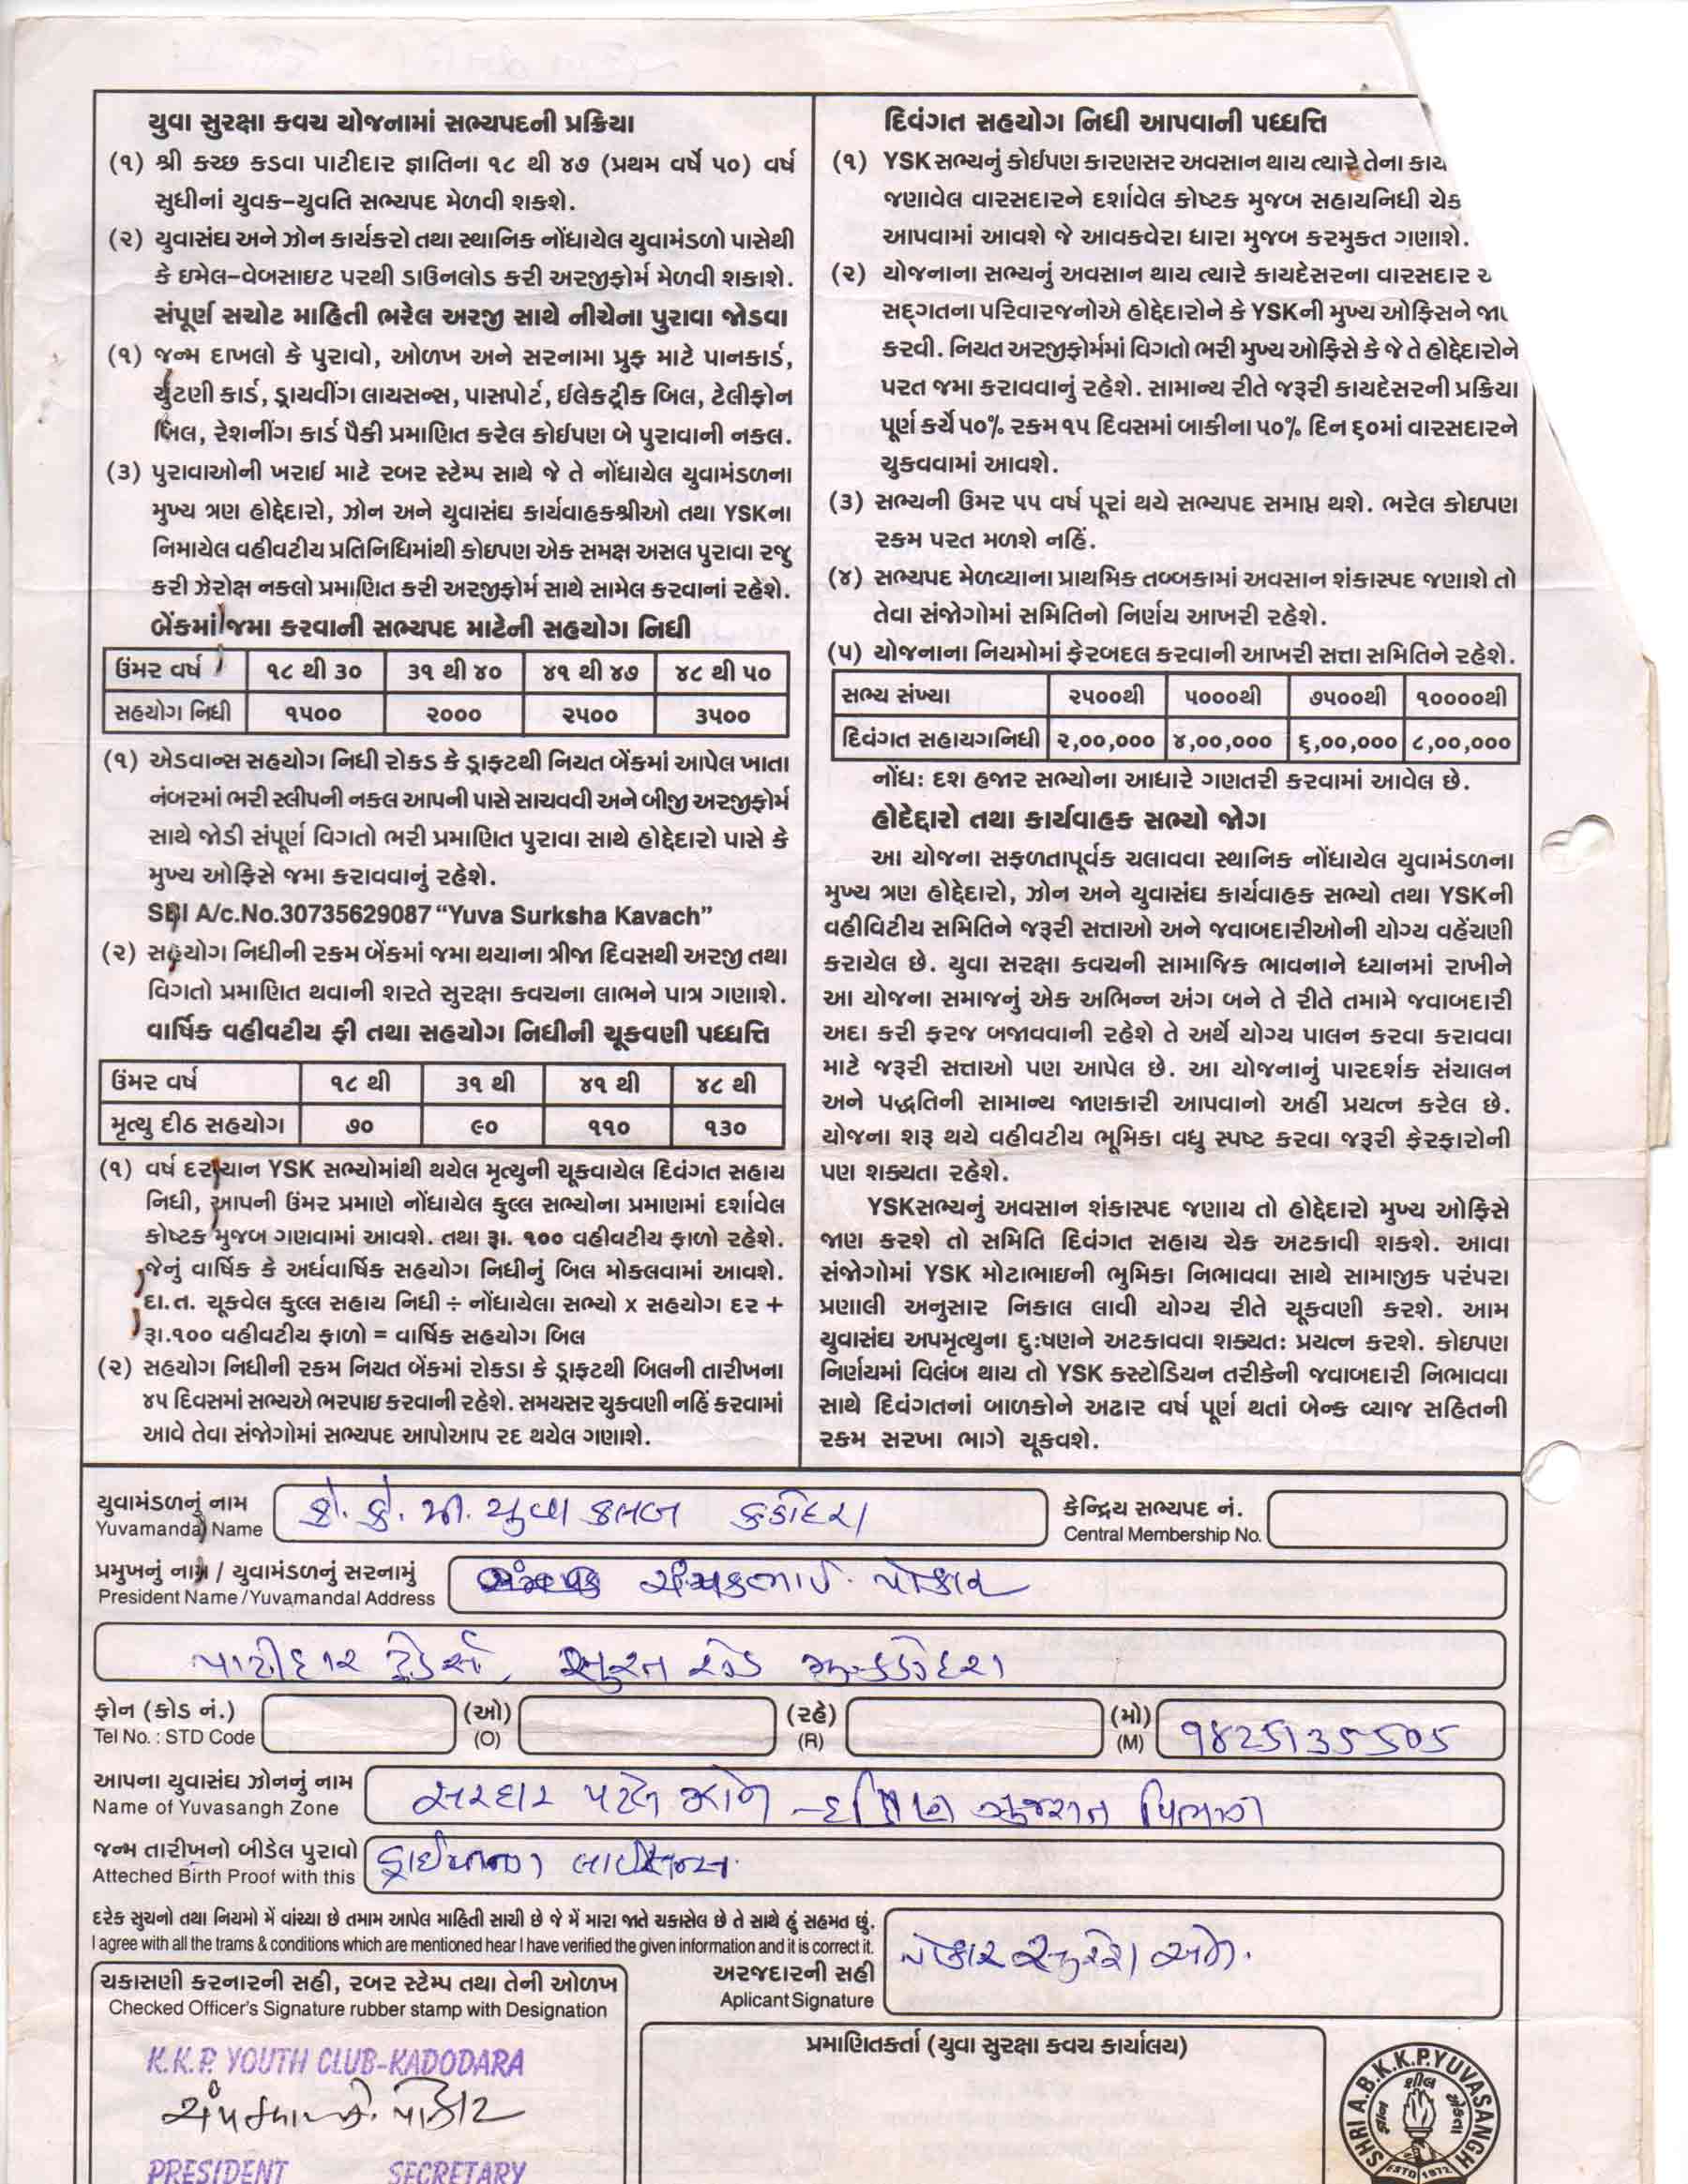 યુવા સુરક્ષા કવચ યોજનામાં સભ્યપદની પ્રક્રિયા
(૧) શ્રી કચ્છ કડવા પાટીદાર જ્ઞાતિના ૧૮ થી ૪૭ (પ્રથમ વર્ષે ૫૦) વર્ષ
સુધીનાં યુવક-યુવતિ સભ્યપદ મેળવી શકશે.
(૨) યુવાસંઘ અને ઝોન કાર્યકરો તથા સ્થાનિક નોંધાયેલ યુવામંડળો પાસેથી
કે ઇમેલ-વેબસાઇટ પરથી ડાઉનલોડ કરી અરજીફોર્મ મેળવી શકાશે.
સંપૂર્ણ સચોટ માહિતી ભરેલ અરજી સાથે નીચેના પુરાવા જોડવા
(૧) જન્મ દાખલો કે પુરાવો, ઓળખ અને સરનામા પ્રુફ માટે પાનકાર્ડ,
ચુંટણી કાર્ડ, ડ્રાયવીંગ લાયસન્સ, પાસપોર્ટ, ઈલેક્ટ્રીક બિલ, ટેલીફોન
બિલ, રેશનીંગ કાર્ડ પૈકી પ્રમાણિત કરેલ કોઈપણ બે પુરાવાની નકલ.
(૩) પુરાવાઓની ખરાઈ માટે રબર સ્ટેમ્પ સાથે જે તે નોંધાયેલ યુવામંડળના
મુખ્ય ત્રણ હોદ્દેદારો, ઝોન અને યુવાસંઘ કાર્યવાહકશ્રીઓ તથા YSKના
નિમાયેલ વહીવટીય પ્રતિનિધિમાંથી કોઇપણ એક સમક્ષ અસલ પુરાવા રજુ
કરી ઝેરોક્ષ નકલો પ્રમાણિત કરી અરજીફોર્મ સાથે સામેલ કરવાનાં રહેશે.
બેંકમાં જમા કરવાની સભ્યપદ માટેની સહયોગ નિધી
ઉંમર વર્ષ ૧૮ થી ૩૦ ૩૧ થી ૪૦ ૪૧ થી ૪૭ ૪૮ થી ૫૦
સહયોગ નિધી ૧૫૦૦ ૨૦૦૦ ૨૫૦૦ ૩૫૦૦
(૧) એડવાન્સ સહયોગ નિધી રોકડ કે ડ્રાફટથી નિયત બેંકમાં આપેલ ખાતા
નંબરમાં ભરી સ્લીપની નકલ આપની પાસે સાચવવી અને બીજી અરજીફોર્મ
સાથે જોડી સંપૂર્ણ વિગતો ભરી પ્રમાણિત પુરાવા સાથે હોદ્દેદારો પાસે કે
મુખ્ય ઓફિસે જમા કરાવવાનું રહેશે.
SBI A/c.No.30735629087 "Yuva Surksha Kavach"
(૨) સહયોગ નિધીની રકમ બેંકમાં જમા થયાના ત્રીજા દિવસથી અરજી તથા
વિગતો પ્રમાણિત થવાની શરતે સુરક્ષા કવચના લાભને પાત્ર ગણાશે.
વાર્ષિક વહીવટીય ફી તથા સહયોગ નિધીની ચૂકવણી પધ્ધત્તિ
ઉંમર વર્ષ ૧૮ થી ૩૧ થી ૪૧ થી ૪૮ થી
મૃત્યુ દીઠ સહયોગ ૭૦ ૯૦ ૧૧૦ ૧૩૦
(૧) વર્ષ દરમ્યાન YSK સભ્યોમાંથી થયેલ મૃત્યુની ચૂકવાયેલ દિવંગત સહાય
નિધી, આપની ઉંમર પ્રમાણે નોંધાયેલ કુલ્લ સભ્યોના પ્રમાણમાં દર્શાવેલ
કોષ્ટક મુજબ ગણવામાં આવશે. તથા રૂા. ૧૦૦ વહીવટીય ફાળો રહેશે.
જેનું વાર્ષિક કે અર્ધવાર્ષિક સહયોગ નિધીનું બિલ મોકલવામાં આવશે.
દા.ત. ચૂકવેલ કુલ્લ સહાય નિધી ÷ નોંધાયેલા સભ્યો x સહયોગ દર +
રૂા.૧૦૦ વહીવટીય ફાળો = વાર્ષિક સહયોગ બિલ
(૨) સહયોગ નિધીની રકમ નિયત બેંકમાં રોકડા કે ડ્રાફટથી બિલની તારીખના
૪૫ દિવસમાં સભ્યએ ભરપાઇ કરવાની રહેશે. સમયસર ચુકવણી નહિં કરવામાં
આવે તેવા સંજોગોમાં સભ્યપદ આપોઆપ રદ થયેલ ગણાશે.
દિવંગત સહયોગ નિધી આપવાની પધ્ધત્તિ
(૧) YSK સભ્યનું કોઈપણ કારણસર અવસાન થાય ત્યારે તેના કાય
જણાવેલ વારસદારને દર્શાવેલ કોષ્ટક મુજબ સહાયનિધી ચેક
આપવામાં આવશે જે આવકવેરા ધારા મુજબ કરમુકત ગણાશે.
(૨) યોજનાના સભ્યનું અવસાન થાય ત્યારે કાયદેસરના વારસદાર
સદ્ગતના પરિવારજનોએ હોદ્દેદારોને કે YSKની મુખ્ય ઓફિસને જા
કરવી. નિયત અરજીફોર્મમાં વિગતો ભરી મુખ્ય ઓફિસે કે જે તે હોદ્દેદારોને
પરત જમા કરાવવાનું રહેશે. સામાન્ય રીતે જરૂરી કાયદેસરની પ્રક્રિયા
પૂર્ણ કર્યે ૫૦% રકમ ૧૫ દિવસમાં બાકીના ૫૦% દિન ૬૦માં વારસદારને
ચુકવવામાં આવશે.
(૩) સભ્યની ઉમર ૫૫ વર્ષ પૂરાં થયે સભ્યપદ સમાપ્ત થશે. ભરેલ કોઇપણ
રકમ પરત મળશે નહિં.
(૪) સભ્યપદ મેળવ્યાના પ્રાથમિક તબ્બકામાં અવસાન શંકાસ્પદ જણાશે તો
તેવા સંજોગોમાં સમિતિનો નિર્ણય આખરી રહેશે.
(૫) યોજનાના નિયમોમાં ફેરબદલ કરવાની આખરી સત્તા સમિતિને રહેશે.
સભ્ય સંખ્યા ૨૫૦૦થી ૫૦૦૦થી ૭૫૦૦થી ૧૦૦૦૦થી
દિવંગત સહાયગનિધી ૨,૦૦,૦૦૦ ૪,૦૦,૦૦૦ ૬,૦૦,૦૦૦ ૮,૦૦,૦૦૦
નોંધ: દશ હજાર સભ્યોના આધારે ગણતરી કરવામાં આવેલ છે.
હોદેદ્દારો તથા કાર્યવાહક સભ્યો જોગ
આ યોજના સફળતાપૂર્વક ચલાવવા સ્થાનિક નોંધાયેલ યુવામંડળના
મુખ્ય ત્રણ હોદ્દેદારો, ઝોન અને યુવાસંઘ કાર્યવાહક સભ્યો તથા YSKની
વહીવિટીય સમિતિને જરૂરી સત્તાઓ અને જવાબદારીઓની યોગ્ય વહેંચણી
કરાયેલ છે. યુવા સરક્ષા કવચની સામાજિક ભાવનાને ધ્યાનમાં રાખીને
આ યોજના સમાજનું એક અભિન્ન અંગ બને તે રીતે તમામે જવાબદારી
અદા કરી ફરજ બજાવવાની રહેશે તે અર્થે યોગ્ય પાલન કરવા કરાવવા
માટે જરૂરી સત્તાઓ પણ આપેલ છે. આ યોજનાનું પારદર્શક સંચાલન
અને પદ્ધતિની સામાન્ય જાણકારી આપવાનો અહીં પ્રયત્ન કરેલ છે.
યોજના શરૂ થયે વહીવટીય ભૂમિકા વધુ સ્પષ્ટ કરવા જરૂરી ફેરફારોની
પણ શક્યતા રહેશે.
YSKસભ્યનું અવસાન શંકાસ્પદ જણાય તો હોદ્દેદારો મુખ્ય ઓફિસે
જાણ કરશે તો સમિતિ દિવંગત સહાય ચેક અટકાવી શકશે. આવા
સંજોગોમાં YSK મોટાભાઇની ભુમિકા નિભાવવા સાથે સામાજીક પરંપરા
પ્રણાલી અનુસાર નિકાલ લાવી યોગ્ય રીતે ચૂકવણી કરશે. આમ
યુવાસંઘ અપમૃત્યુના દુઃષણને અટકાવવા શક્યતઃ પ્રયત્ન કરશે. કોઇપણ
નિર્ણયમાં વિલંબ થાય તો YSK કસ્ટોડિયન તરીકેની જવાબદારી નિભાવવા
સાથે દિવંગતનાં બાળકોને અઢાર વર્ષ પૂર્ણ થતાં બેન્ક વ્યાજ સહિતની
રકમ સરખા ભાગે ચૂકવશે.
યુવામંડળનું નામ કે. કે. પી. યુવા કલબ કડોદરા કેન્દ્રિય સભ્યપદ નં.
Yuvamandal Name Central Membership No.
પ્રમુખનું નામ / યુવામંડળનું સરનામું ચંપકભાઈ પોકાર
President Name /Yuvamandal Address
પાટીદાર ટ્રેડર્સ, સુરત રોડ મુ. કડોદરા
ફોન (કોડ નં.) (ઓ) (રહે) (મો) 9825135505
Tel No. : STD Code (O) (R) (M)
આપના યુવાસંઘ ઝોનનું નામ સરદાર પટેલ ઝોન - દક્ષિણ ગુજરાત વિભાગ
Name of Yuvasangh Zone
જન્મ તારીખનો બીડેલ પુરાવો ડ્રાઈવીંગ લાઈસન્સ
Atteched Birth Proof with this
દરેક સુચનો તથા નિયમો મેં વાંચ્યા છે તમામ આપેલ માહિતી સાચી છે જે મેં મારા જાતે ચકાસેલ છે તે સાથે હું સહમત છું.
I agree with all the trams & conditions which are mentioned hear I have verified the given information and it is correct it.
અરજદારની સહી પોકાર સુરેશ એમ.
Aplicant Signature
ચકાસણી કરનારની સહી, રબર સ્ટેમ્પ તથા તેની ઓળખ
Checked Officer's Signature rubber stamp with Designation
K.K.P. YOUTH CLUB-KADODARA
PRESIDENT SECRETARY
પ્રમાણિતકર્તા (યુવા સુરક્ષા કવચ કાર્યાલય)
SHRI A.B.K.K.P.YUVASANGH
ESTD 1972